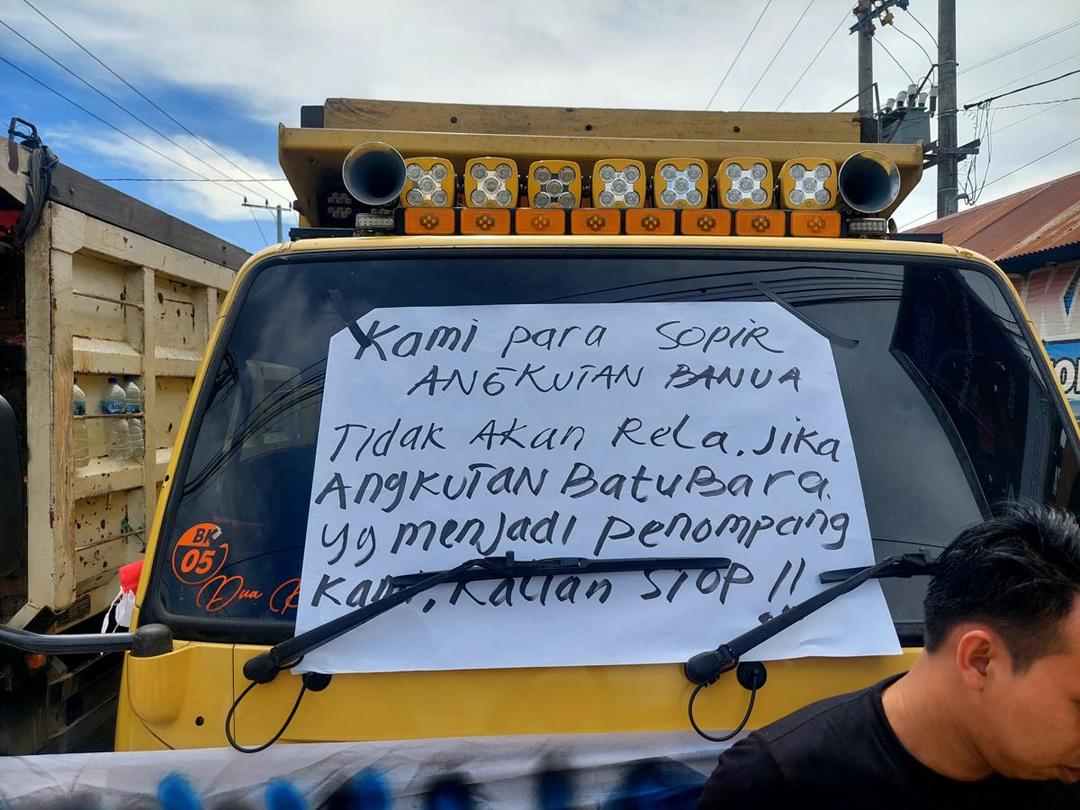 Kami para SOPIR
ANGKUTAN BANUA
Tidak Akan Rela. Jika
AngKUTAN BatuBara.
yg menjadi penompang
Kami, Kalian STOP !!
BK
05
Dua